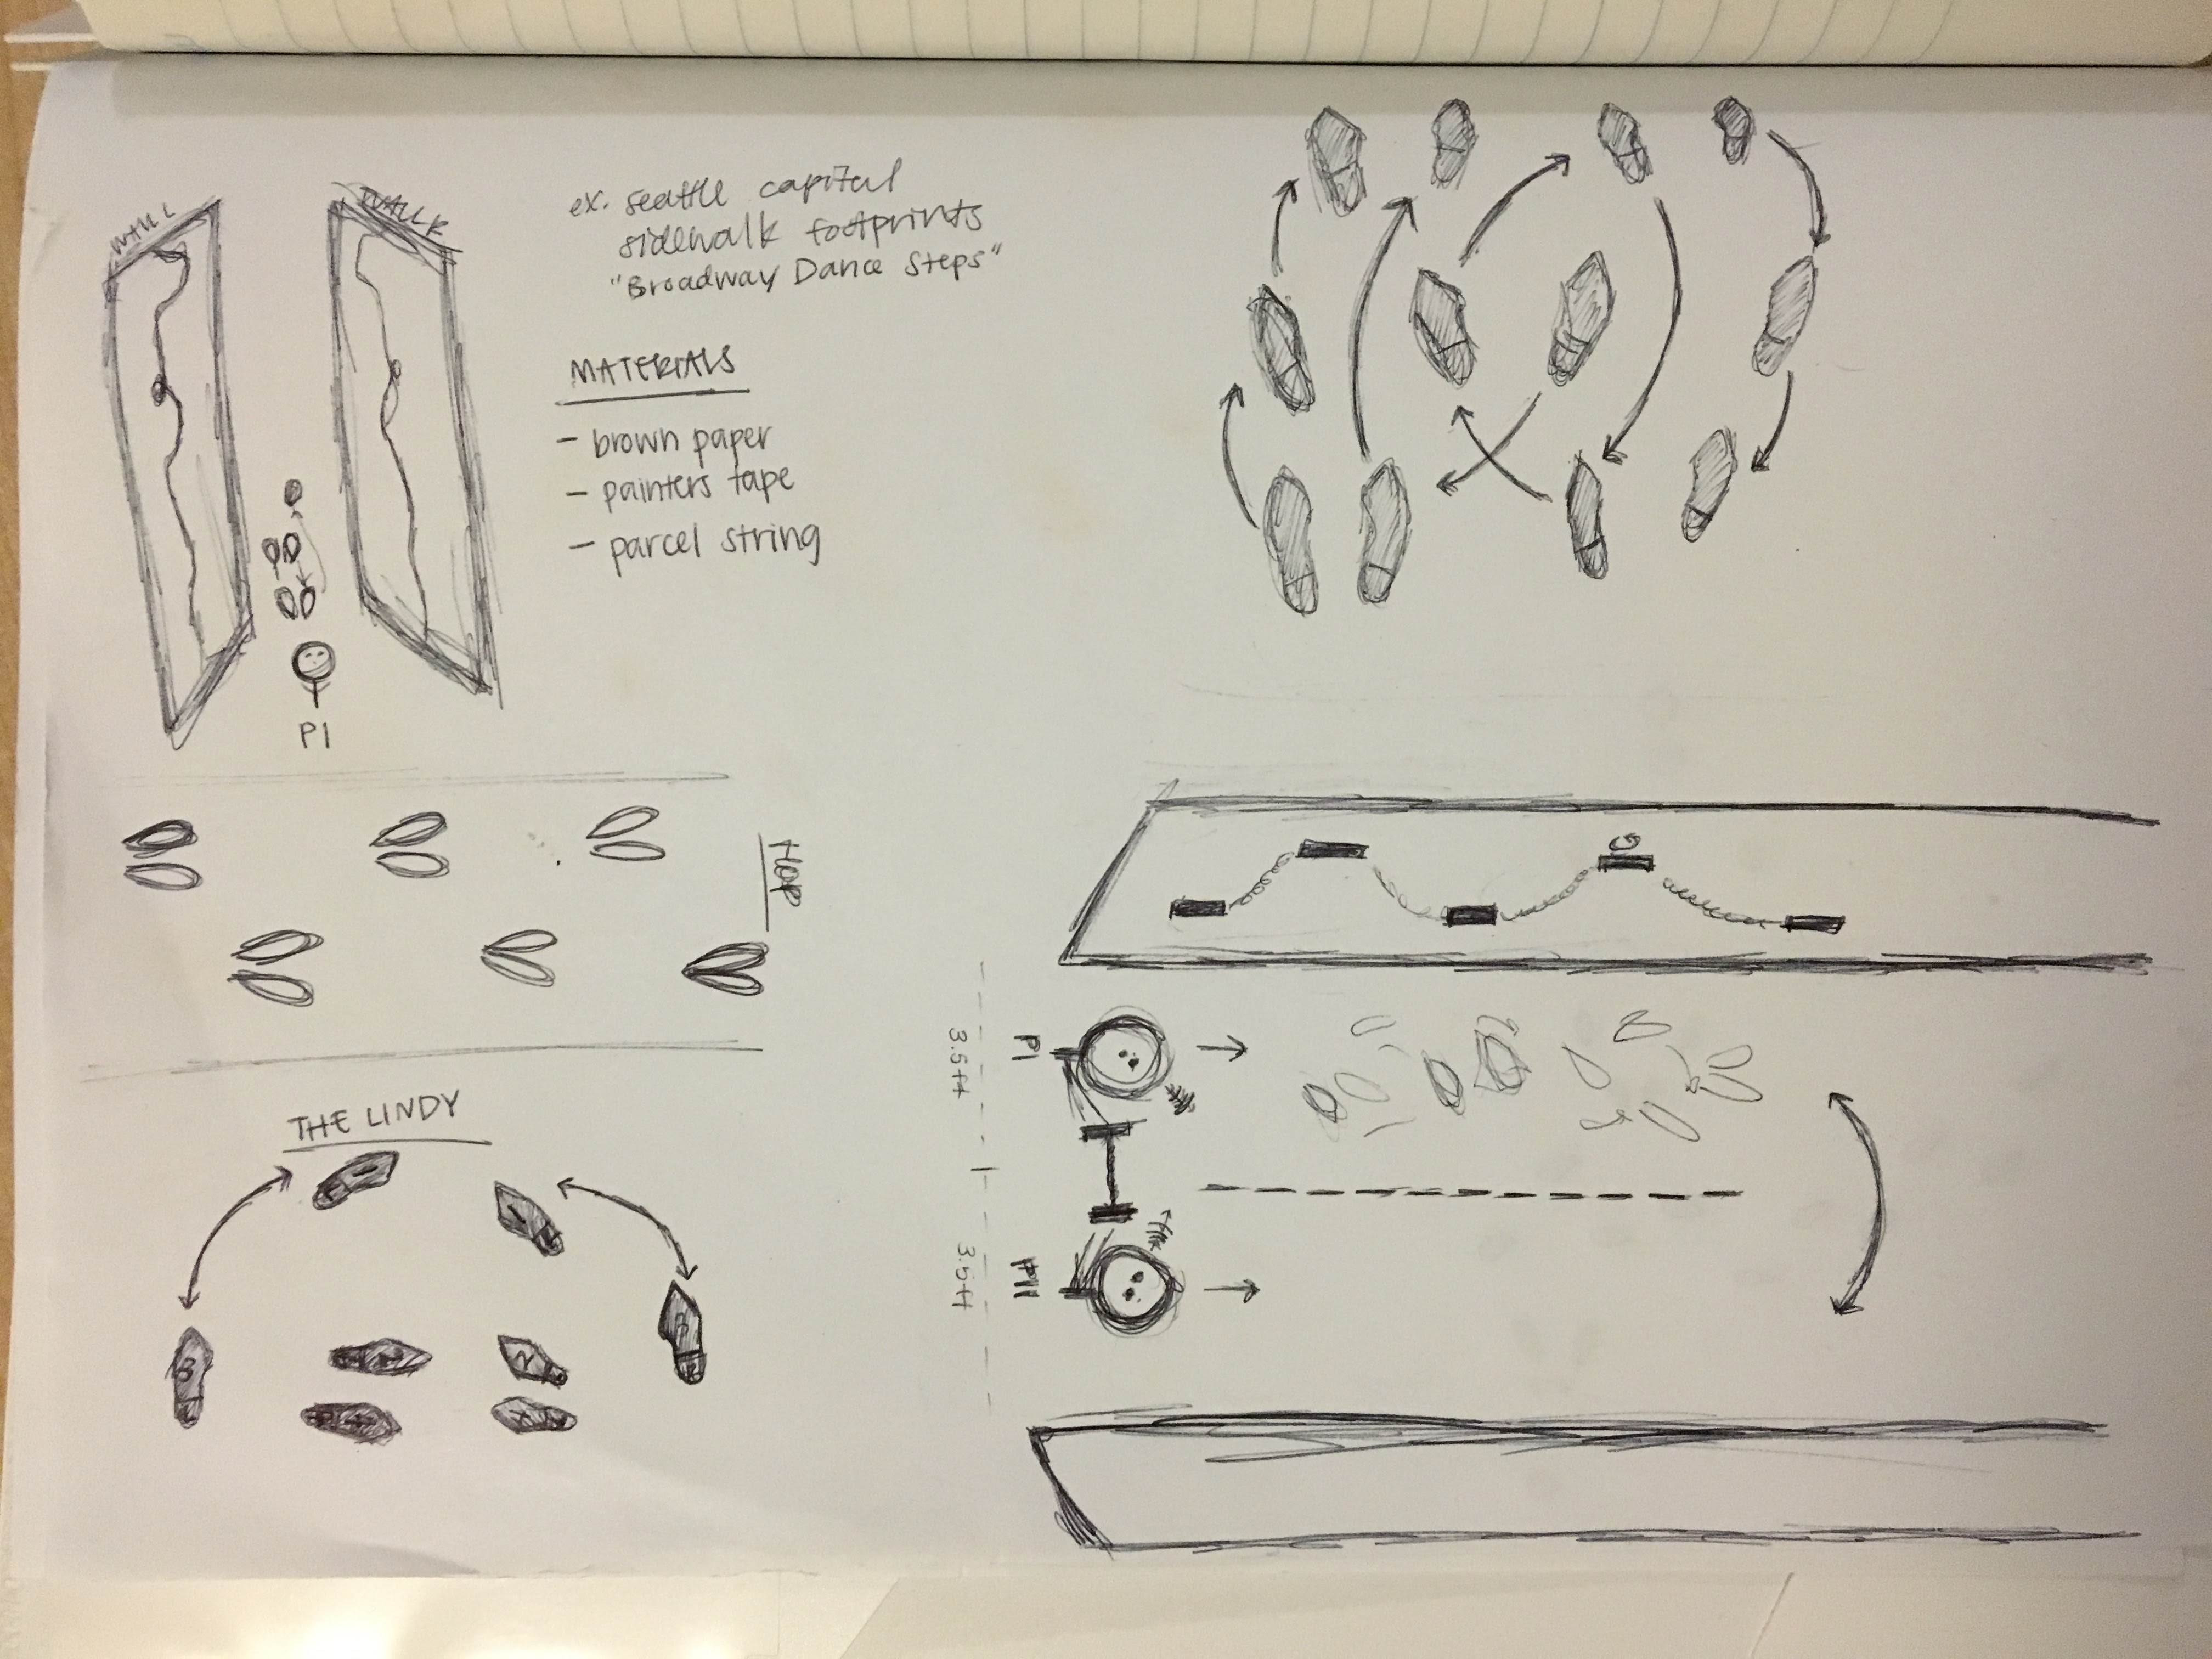 ex: seattle capital
sidewalk footprints
"Broadway Dance Steps"
MATERIALS
- brown paper
- painters tape
- parcel string
WALL
WALL
P1
THE LINDY
3.5 ft
3.5 ft
P1
P11